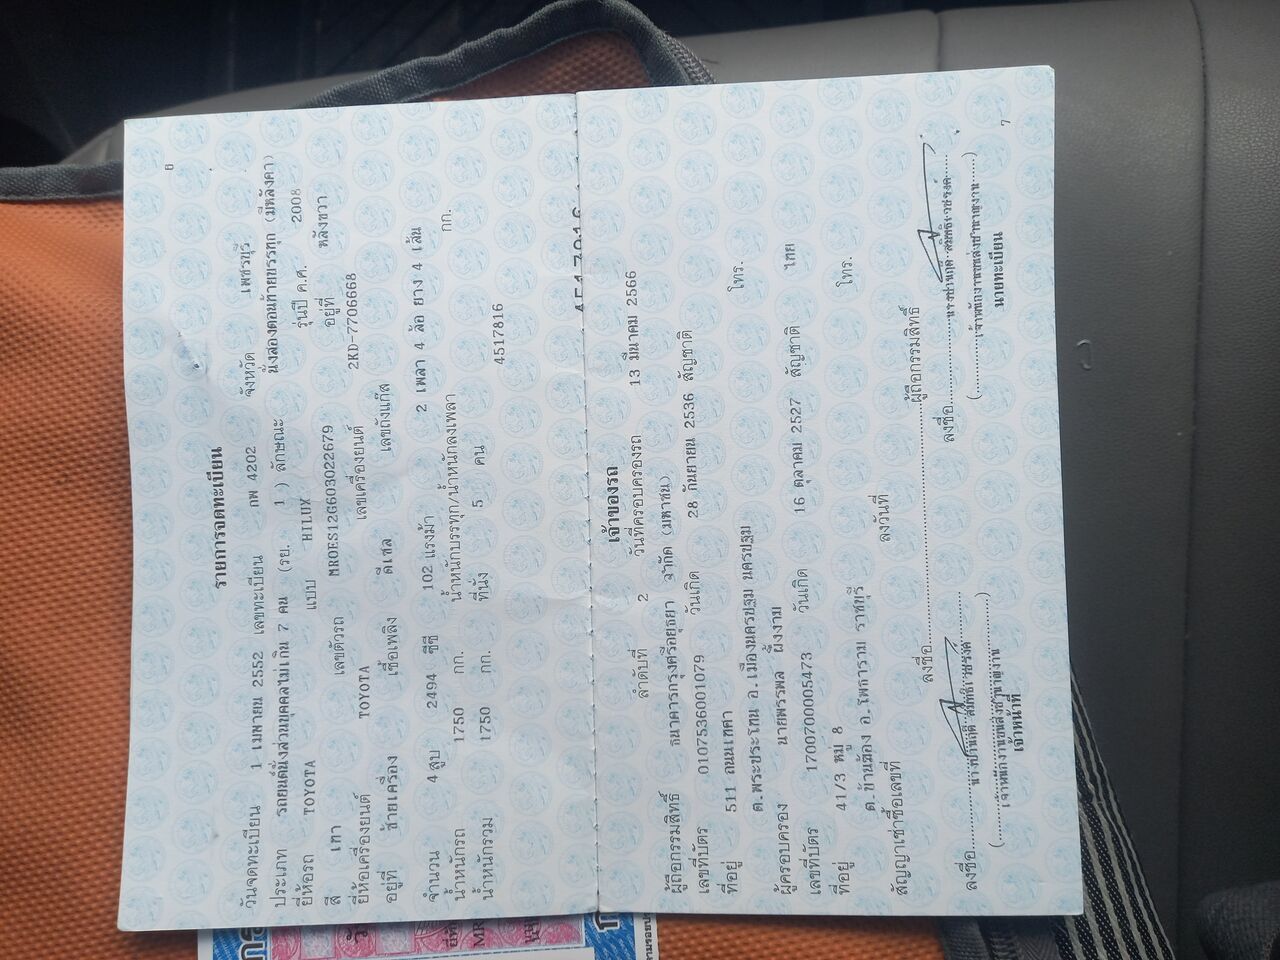 6
รายการจดทะเบียน
วันจดทะเบียน 1 เมษายน 2552 เลขทะเบียน กพ 4202 จังหวัด เพชรบุรี
ประเภท รถยนต์นั่งส่วนบุคคลไม่เกิน 7 คน (รย. 1 ) ลักษณะ นั่งสองตอนท้ายบรรทุก (มีหลังคา)
ยี่ห้อรถ TOYOTA แบบ HILUX รุ่นปี ค.ศ. 2008
สี เทา เลขตัวรถ MROES12G603022679 อยู่ที่ หลังขวา
ยี่ห้อเครื่องยนต์ TOYOTA เลขเครื่องยนต์ 2KD-7706668
อยู่ที่ ซ้ายเครื่อง เชื้อเพลิง ดีเซล เลขถังแก๊ส
จำนวน 4 สูบ 2494 ซีซี 102 แรงม้า 2 เพลา 4 ล้อ ยาง 4 เส้น
น้ำหนักรถ 1750 กก. น้ำหนักบรรทุก/น้ำหนักลงเพลา กก.
น้ำหนักรวม 1750 กก. ที่นั่ง 5 คน
4517816
เจ้าของรถ
ลำดับที่ 2 วันที่ครอบครองรถ 13 มีนาคม 2566
ผู้ถือกรรมสิทธิ์ ธนาคารกรุงศรีอยุธยา จำกัด (มหาชน)
เลขที่บัตร 0107536001079 วันเกิด 28 กันยายน 2536 สัญชาติ
ที่อยู่ 511 ถนนเทศา โทร.
ต.พระประโทน อ.เมืองนครปฐม นครปฐม
ผู้ครอบครอง นายพรรพล ผึ้งงาม
เลขที่บัตร 1700700005473 วันเกิด 16 ตุลาคม 2527 สัญชาติ ไทย
ที่อยู่ 41/3 หมู่ 8 โทร.
ต.ชำแระ อ.โพธาราม ราชบุรี
สัญญาเช่าซื้อเลขที่ ลงวันที่
ลงชื่อ ผู้ถือกรรมสิทธิ์
ลงชื่อ ลงชื่อ
(เจ้าพนักงานขนส่งชำนาญงาน) (เจ้าพนักงานขนส่งชำนาญงาน)
เจ้าหน้าที่ นายทะเบียน
7